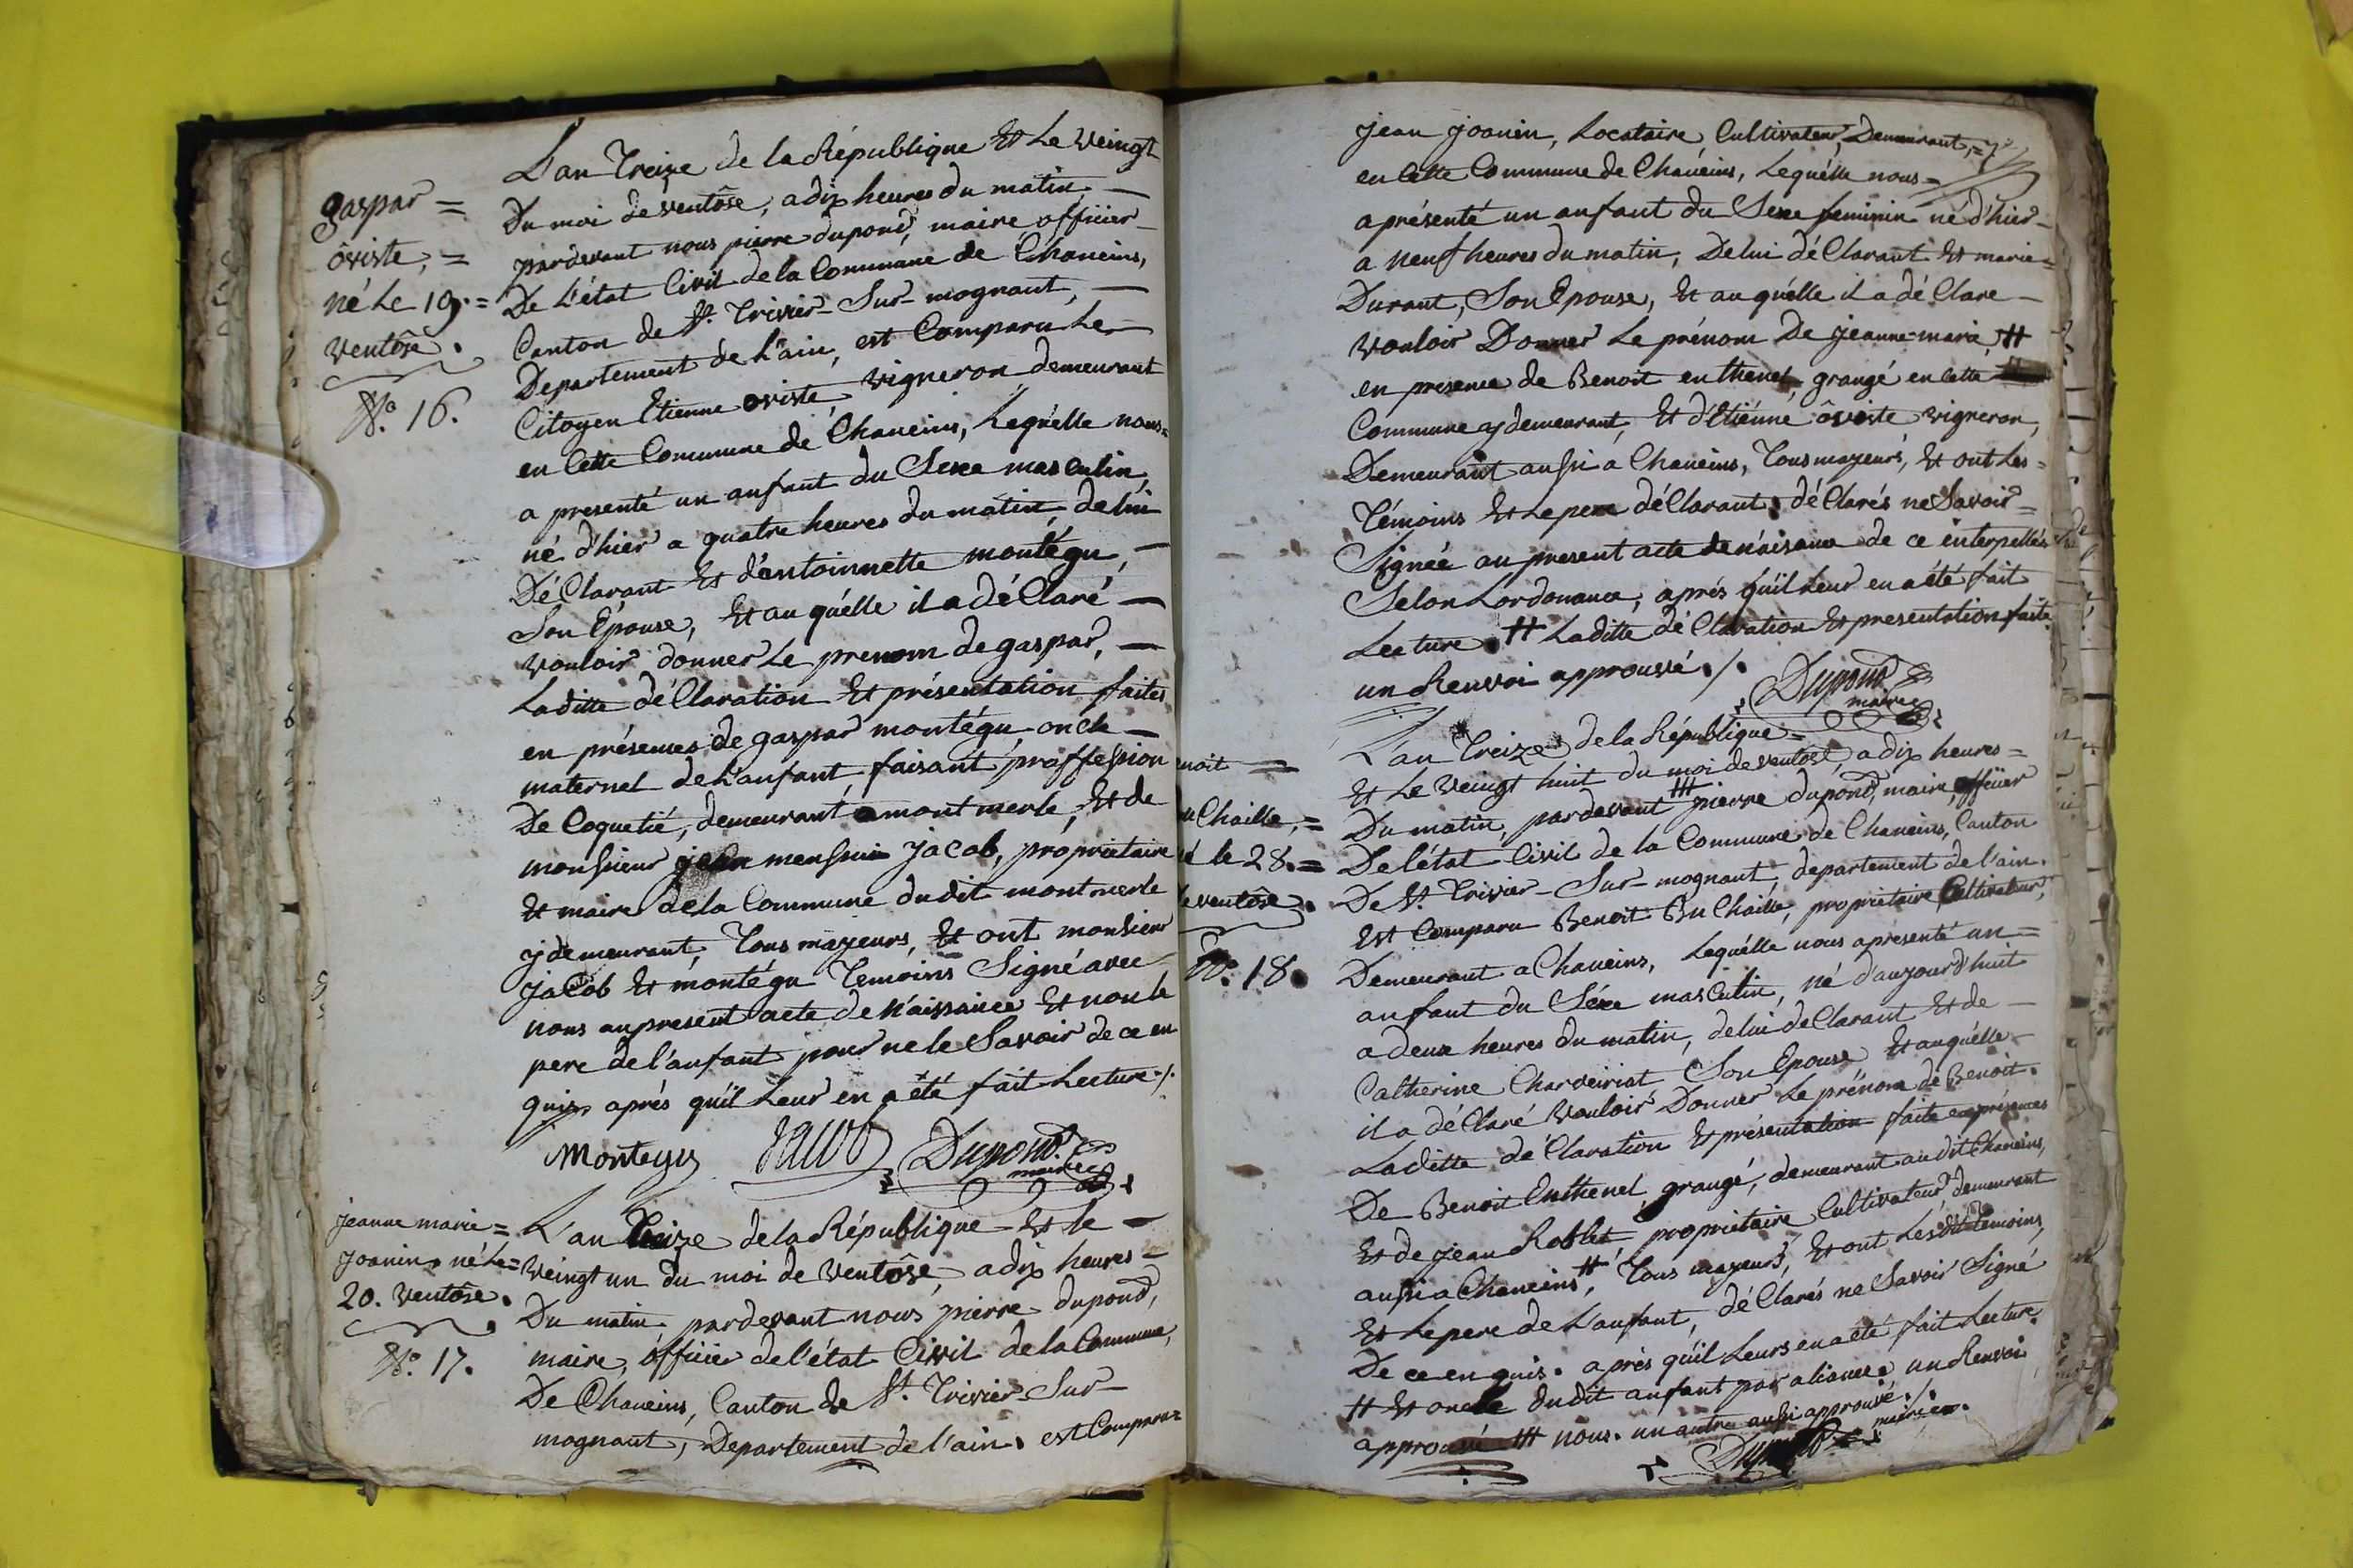 gaspar =
ôviste, =
né Le 19. =
ventôse.
N.° 16.
L'an Treize de la République Et Le veingt
Du moi de ventôse, a dix heures du matin, —
pardevant nous pierre dupond, maire officier —
De L'état Civil de la Commune de Chaneins,
Canton de St. Trivier-Sur-mognant, —
Departement de L'ain, est Comparu Le —
Citoyen Etienne oviste, vigneron demeurant
en Cette Commune de Chaneins, Lequélle nous =
a presenté un anfant du Sexe masculin,
né d'hier a quatre heures du matin, de lui
DéClarant Et d'antoinnette montégu, —
Son Épouse, Et au quélle il a déClaré —
vouloir donner Le prenom de gaspar, —
Laditte déClaration Et présentation faites
en présences de gaspar montégu oncle —
maternel de L'anfant, faisant proffession
De Coquetié, demeurant a montmerle, Et de
monsieur jean Jacob, propriétaire
Et maire de la Commune dudit montmerle
y demeurant, Tous mayeurs, Et ont monsieur
Jacob Et montégu Temoins Signé avec
nous au present acte de n'aissance Et non le
pere de l'anfant pour ne le Savoir de ce en
quis, aprés qu'il Leur en a été fait Lecture ./.
Montegu Jacob Dupond
maire
jeanne marie =
joanin, né Le =
20. ventôse.
N.° 17.
L'an Treize de la République Et le —
veingt un du moi de ventôse, a dix heures —
Du matin pardevant nous pierre dupond,
maire, officier de l'état Civil de la Commune,
De Chaneins, Canton de St. Trivier-Sur-
mognant, Departement de l'ain. est Comparu =
jean joanin, Locataire, Cultivateur, Demeurant, =
en Cette Commune de Chaneins, Lequélle nous =
a présenté un anfant du Sexe feminin né d'hier —
a neuf heures du matin, De lui déClarant Et marie =
Durant, Son Epouse, Et au quélle il a déClare —
vouloir Donner Le prénom De jeanne-marie, #
en presence de Benoit enthenel, grangé en Cette
Commune y demeurant, Et d'Etiénne ôviste vigneron,
Demeurant aussi a Chaneins, Tous mayeurs, Et ont Les =
Témoins Et Le pere déClarant, déClarés ne Savoir =
Signée au present acte de n'aisance de ce interpellés
Selon Lordonance, aprés qu'il Leur en a été fait
Lecture. # Laditte déClaration Et presentation faite.
un Renvoi approuvé ./. Dupond
maire
noit =
uChaille, =
é le 28. =
e ventôse.
N.° 18.
L'an Treize de la République =
Et Le veingt huit du moi de ventose, a dix heures =
Du matin, pardevant ### pierre dupond, maire, officier
De l'état Civil de la Commune de Chaneins, Canton
De St. Trivier-Sur-mognant, departement de l'ain.
Est Comparu Benoit BuChaille, propriétaire Cultivateur,
Demeurant a Chaneins, Lequélle nous a presenté un =
anfant du Séxe masculin, né d'aujourd'huit
a deux heures du matin, de lui deClarant Et de —
Catherine Charveiriat Son Epouse Et au quélle —
il a déClaré vouloir Donner Le prénom de Benoit.
Laditte déClaration Et présentation faite en présences
De Benoit Enthenel, grangé, demeurant au dit Chaneins,
Et de jean Roblet propriétaire Cultivateur, demeurant
aussi a Chaneins, # Tous mayeurs, Et ont Lesdits Temoins,
Et Le pere de L'anfant, déClarés ne Savoir Signé
De ce en quis. aprés qu'il Leurs en a été fait Lecture.
# Et oncle dudit anfant par aliance. un Renvoi
approuvé ### nous. un autre aussi approuvé ./.
Dupond maire